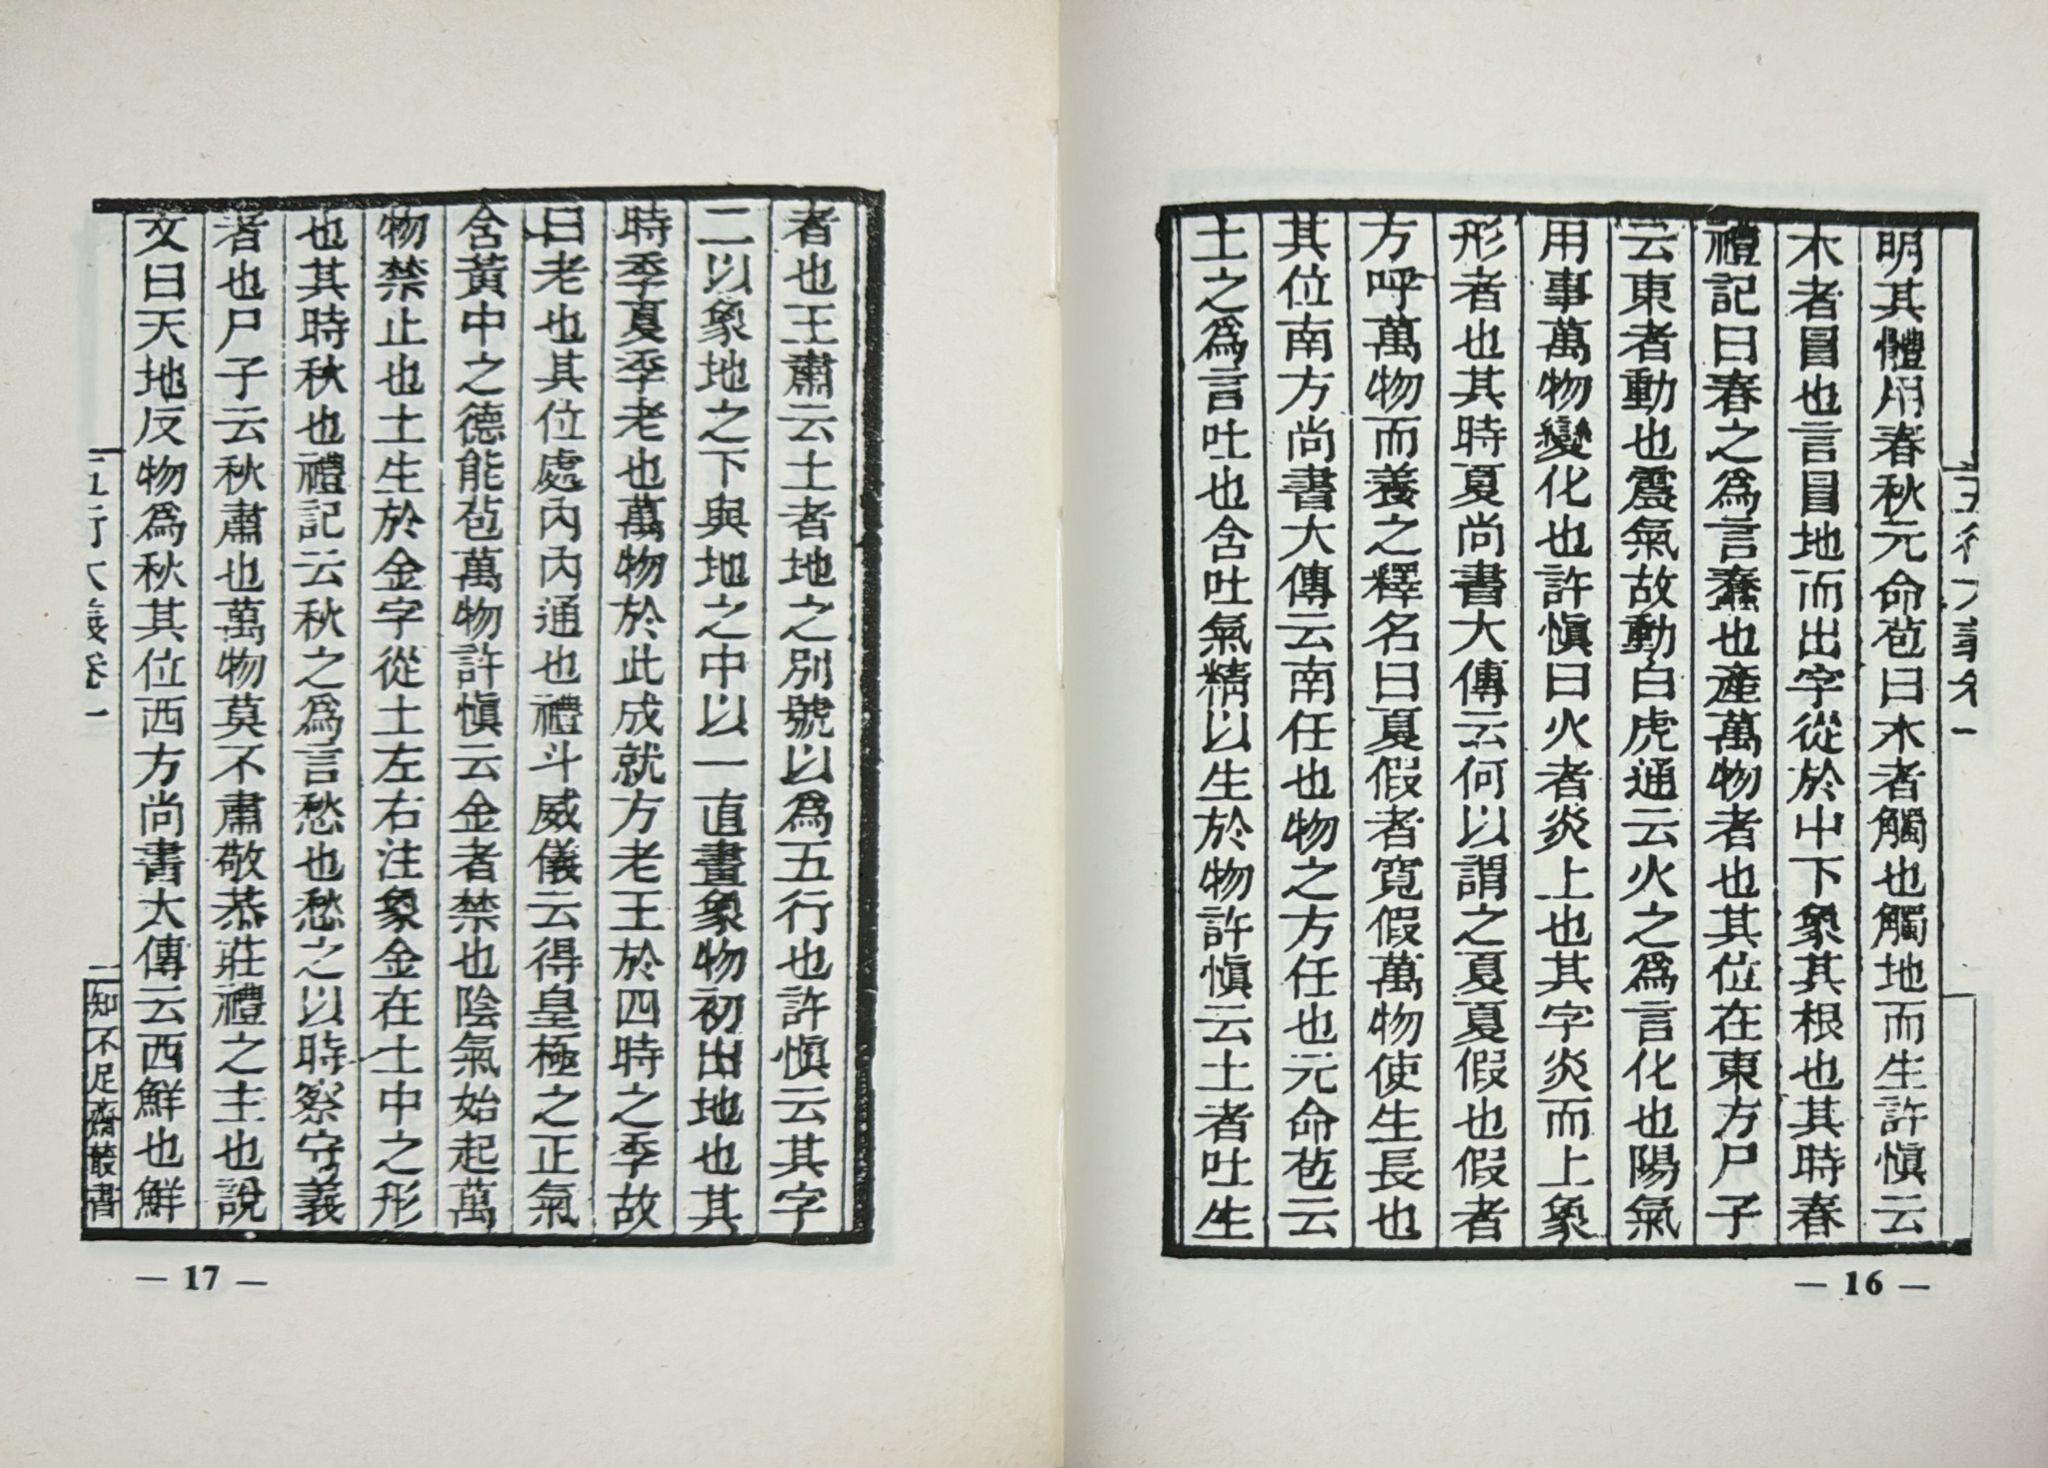 五行大義卷一
明其體用春秋元命苞曰木者觸也觸地而生許愼云
木者冒也言冒地而出字從於屮下象其根也其時春
禮記曰春之爲言蠢也產萬物者也其位在東方尸子
云東者動也震氣故動白虎通云火之爲言化也陽氣
用事萬物變化也許愼曰火者炎上也其字炎而上象
形者也其時夏尚書大傳云何以謂之夏夏假也假者
方呼萬物而養之釋名曰夏假者寬假萬物使生長也
其位南方尚書大傳云南任也物之方任也元命苞云
土之爲言吐也含吐氣精以生於物許愼云土者吐生
— 16 —
者也王肅云土者地之別號以爲五行也許愼云其字
二以象地之下與地之中以一直畫象物初出地也其
時季夏季老也萬物於此成就方老王於四時之季故
曰老也其位處內內通也禮斗威儀云得皇極之正氣
含黃中之德能苞萬物許愼云金者禁也陰氣始起萬
物禁止也土生於金字從土左右注象金在土中之形
也其時秋也禮記云秋之爲言愁也愁之以時察守義
者也尸子云秋肅也萬物莫不肅敬恭莊禮之主也說
文曰天地反物爲秋其位西方尚書大傳云西鮮也鮮
五行大義卷一
知不足齋叢書
— 17 —